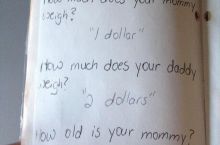 How much does your mommy
weigh?
"1 dollar"
How much does your daddy
weigh?
"2 dollars"
How old is your mommy?